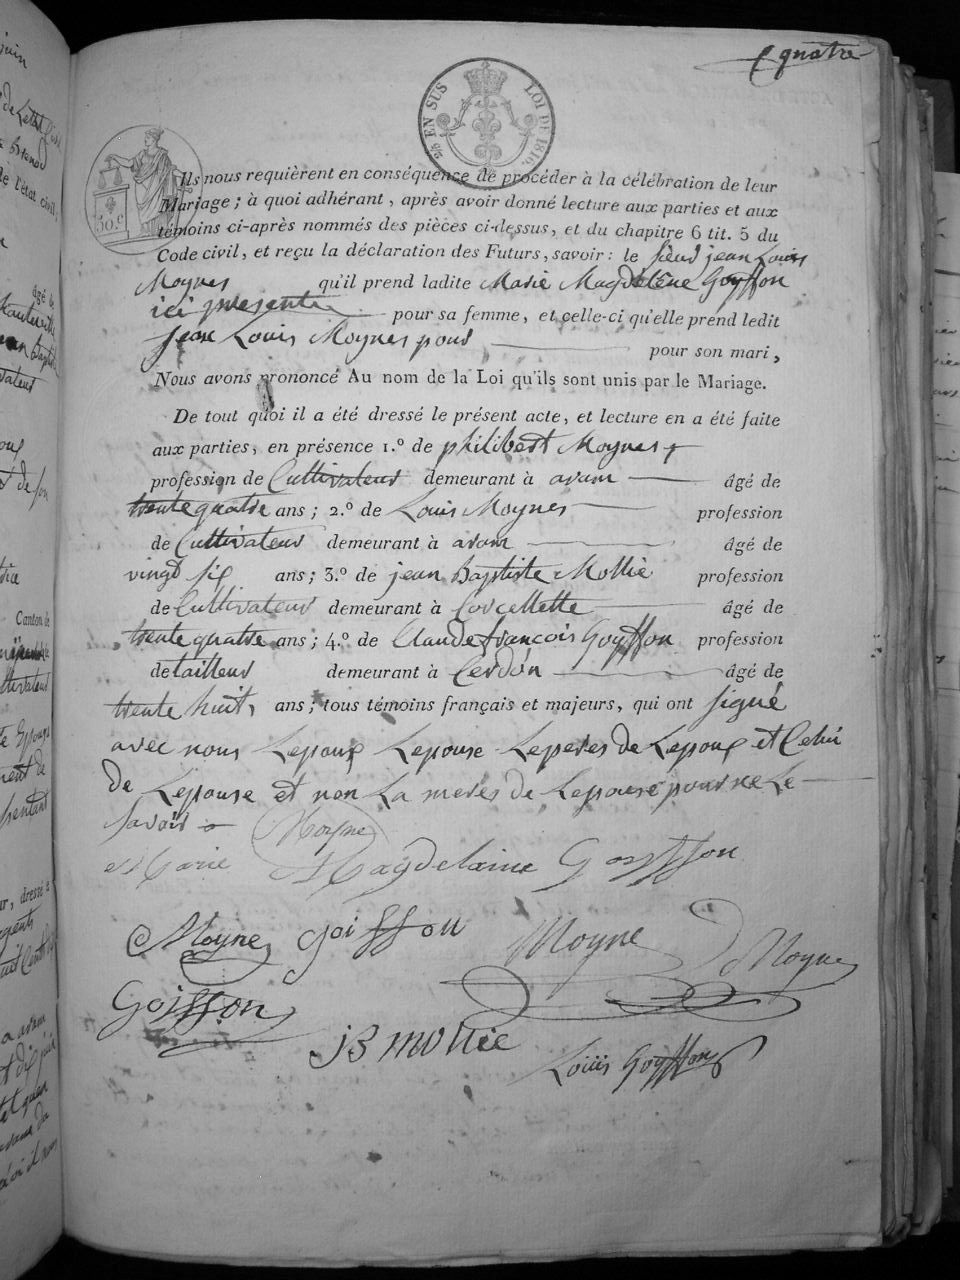 quatre
2/5 EN SUS LOI DE 1816.
50.c
Ils nous requièrent en conséquence de procéder à la célébration de leur
Mariage ; à quoi adhérant, après avoir donné lecture aux parties et aux
témoins ci-après nommés des pièces ci-dessus, et du chapitre 6 tit. 5 du
Code civil, et reçu la déclaration des Futurs, savoir : le sieur jean Louis
Moynes qu'il prend ladite Marie Magdeléne Goyffon
ici presente pour sa femme, et celle-ci qu'elle prend ledit
jean Louis Moynes pour pour son mari,
Nous avons prononcé Au nom de la Loi qu'ils sont unis par le Mariage.
De tout quoi il a été dressé le présent acte, et lecture en a été faite
aux parties, en présence 1.o de philibert Moynes
profession de Cultivateur demeurant à avam âgé de
trente quatre ans ; 2.o de Louis Moynes profession
de Cultivateur demeurant à avam âgé de
vingt six ans ; 3.o de jean Baptiste Mollie profession
de Cultivateur demeurant à Corcellette âgé de
trente quatre ans ; 4.o de Claude françois Goyffon profession
de tailleur demeurant à Cerdon âgé de
trente huit, ans ; tous témoins français et majeurs, qui ont signé
avec nous Lepoux Lepouse Leperes de Lepoux et Celui
de Lepouse et non La meres de Lepouse pour ne Le
savoir Moyne
Marie Magdelaine Goiffon
Moyne goiffon Moyne Moyne
Goiffon
JB mollie
Louis Goyffon